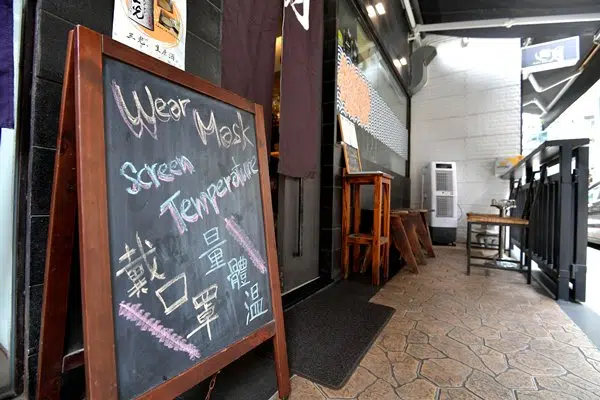 Wear Mask
Screen
Temperature
戴口罩
量體溫